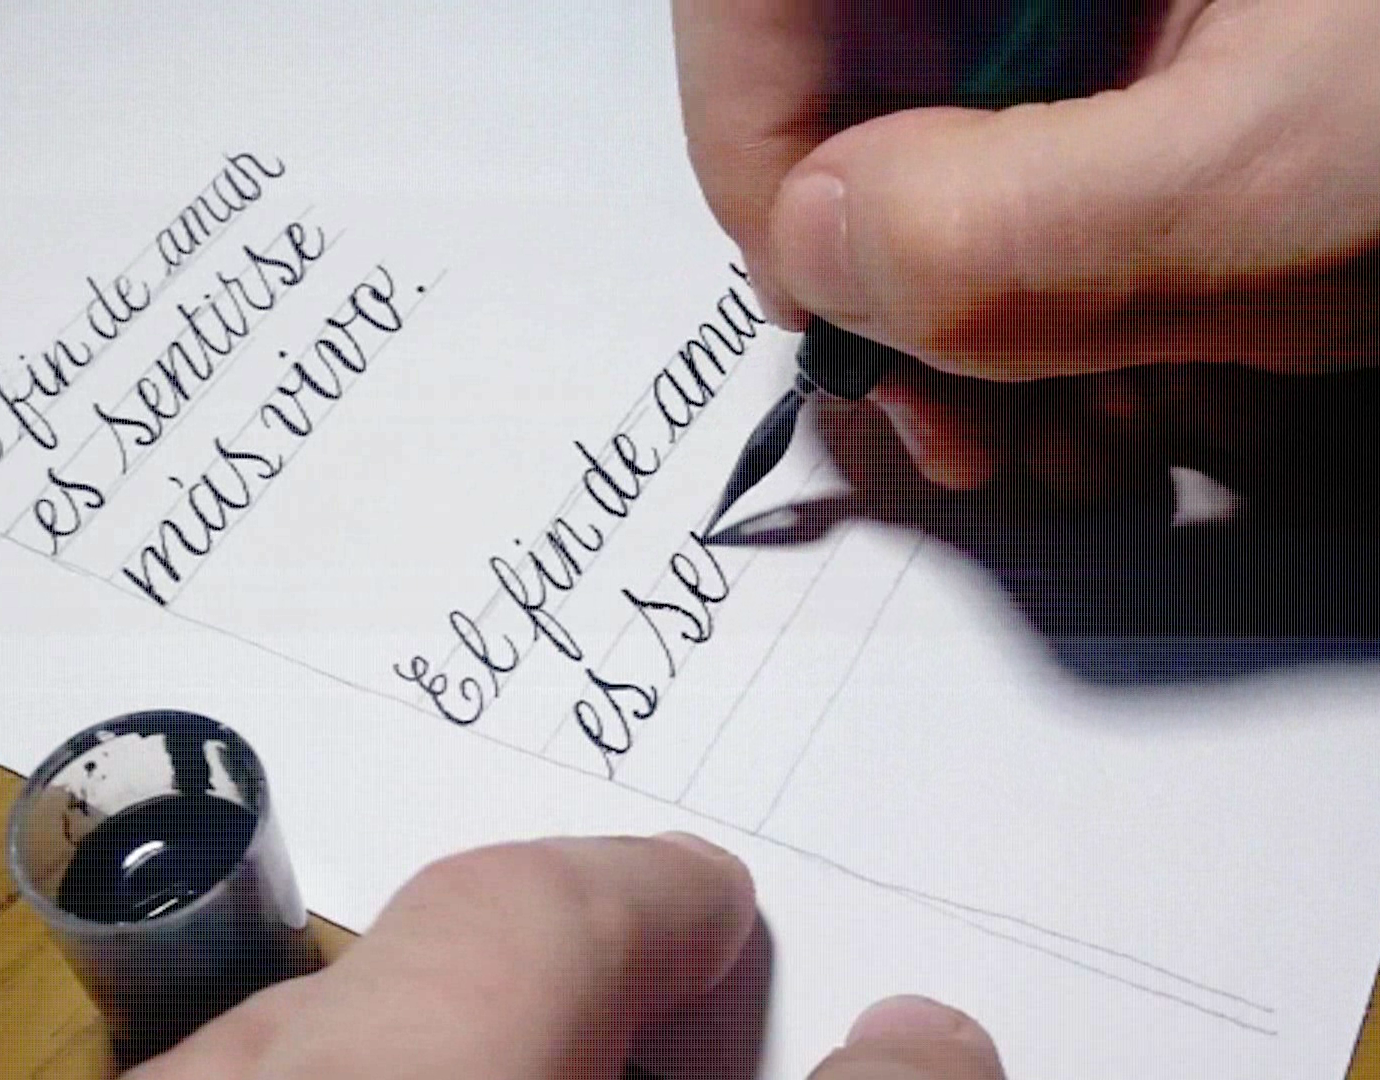 fin de amar
es sentirse
más vivo.
El fin de amar
es se